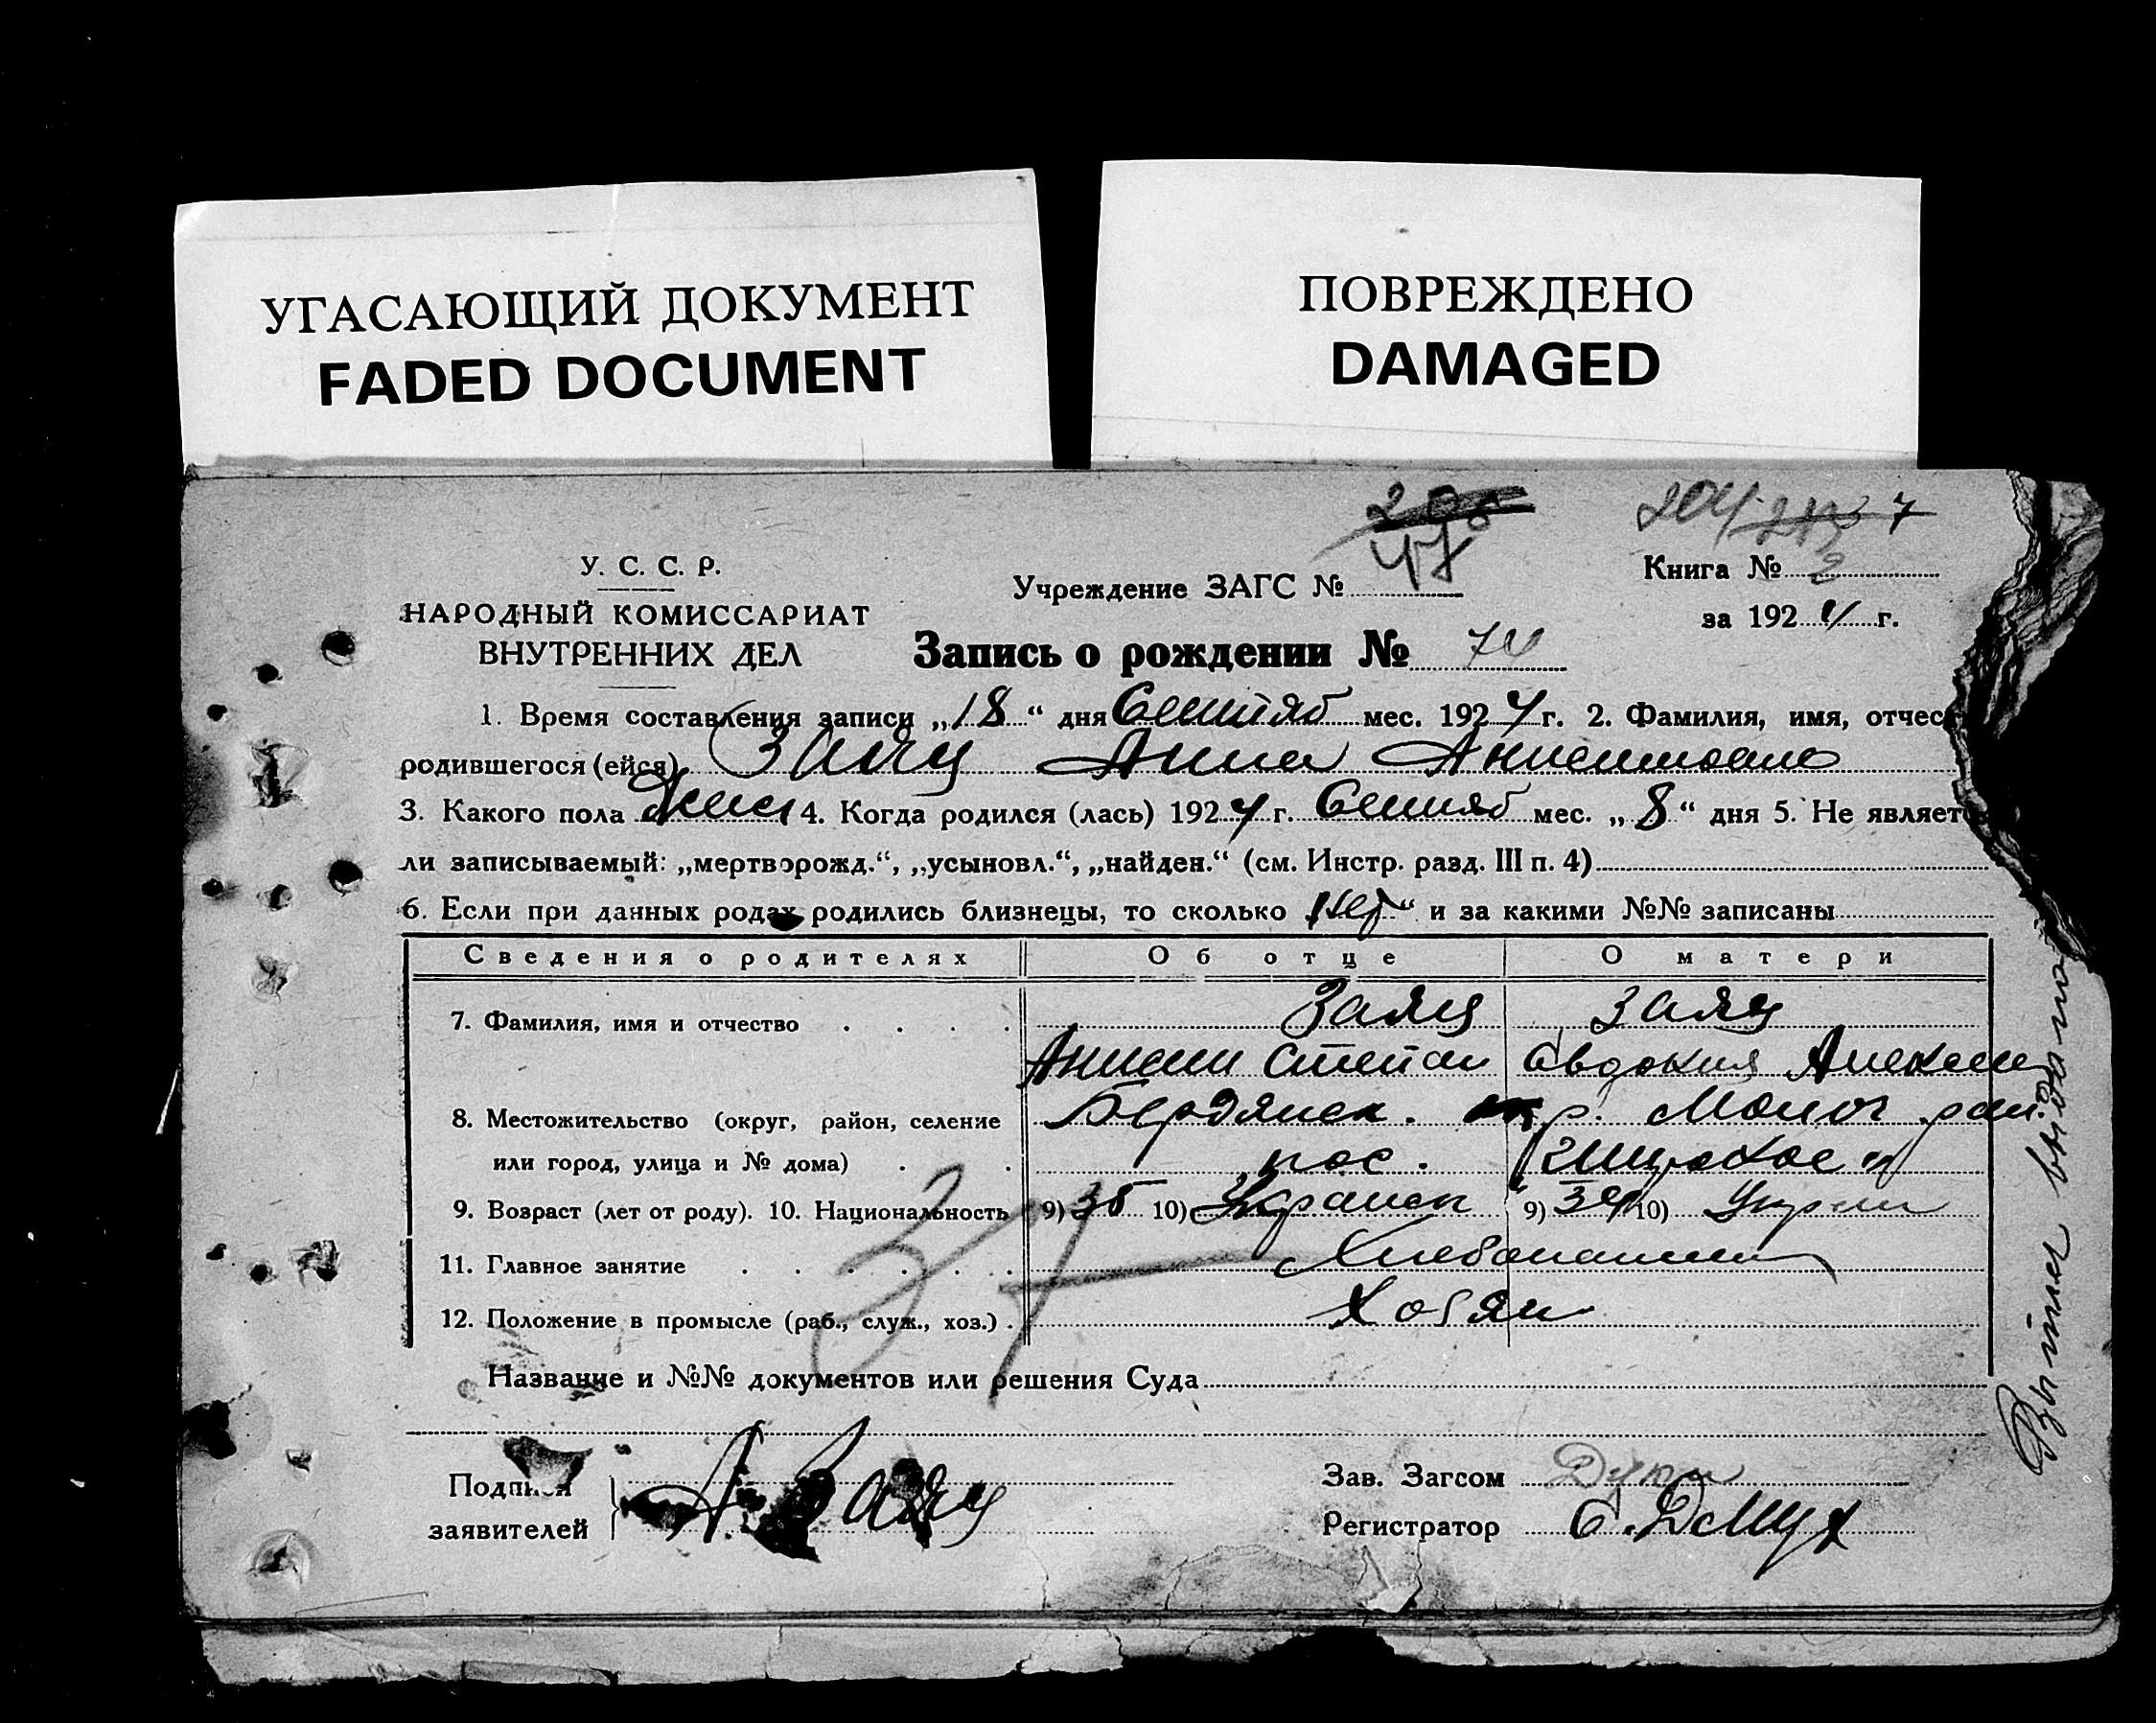 УГАСАЮЩИЙ ДОКУМЕНТ
FADED DOCUMENT
ПОВРЕЖДЕНО
DAMAGED
204
У. С. С. Р.
НАРОДНЫЙ КОМИССАРИАТ
ВНУТРЕННИХ ДЕЛ
Учреждение ЗАГС №
Книга № 2
за 1924 г.
Запись о рождении № 74
1. Время составления записи „18“ дня Сентяб мес. 1924 г. 2. Фамилия, имя, отчес
родившегося (ейся) Заяц Анна
3. Какого пола Жен 4. Когда родился (лась) 1924 г. Сентяб мес. „8“ дня 5. Не являет
ли записываемый: „мертворожд.“, „усыновл.“, „найден.“ (см. Инстр. разд. III п. 4)
6. Если при данных родах родились близнецы, то сколько и за какими №№ записаны
Сведения о родителях Об отце О матери
7. Фамилия, имя и отчество Заяц Заяц
Степан Евдокия Алексее
8. Местожительство (округ, район, селение Бердянск. окр. Молоч рай.
или город, улица и № дома) пос.
9. Возраст (лет от роду). 10. Национальность 9) 35 10) Украинск 9) 34 10) Украин
11. Главное занятие Хлебопашец
12. Положение в промысле (раб., служ., хоз.) Хозяин
37
Название и №№ документов или решения Суда
Подписи
заявителей А Заяц
Зав. Загсом
Регистратор
Выпись выдана